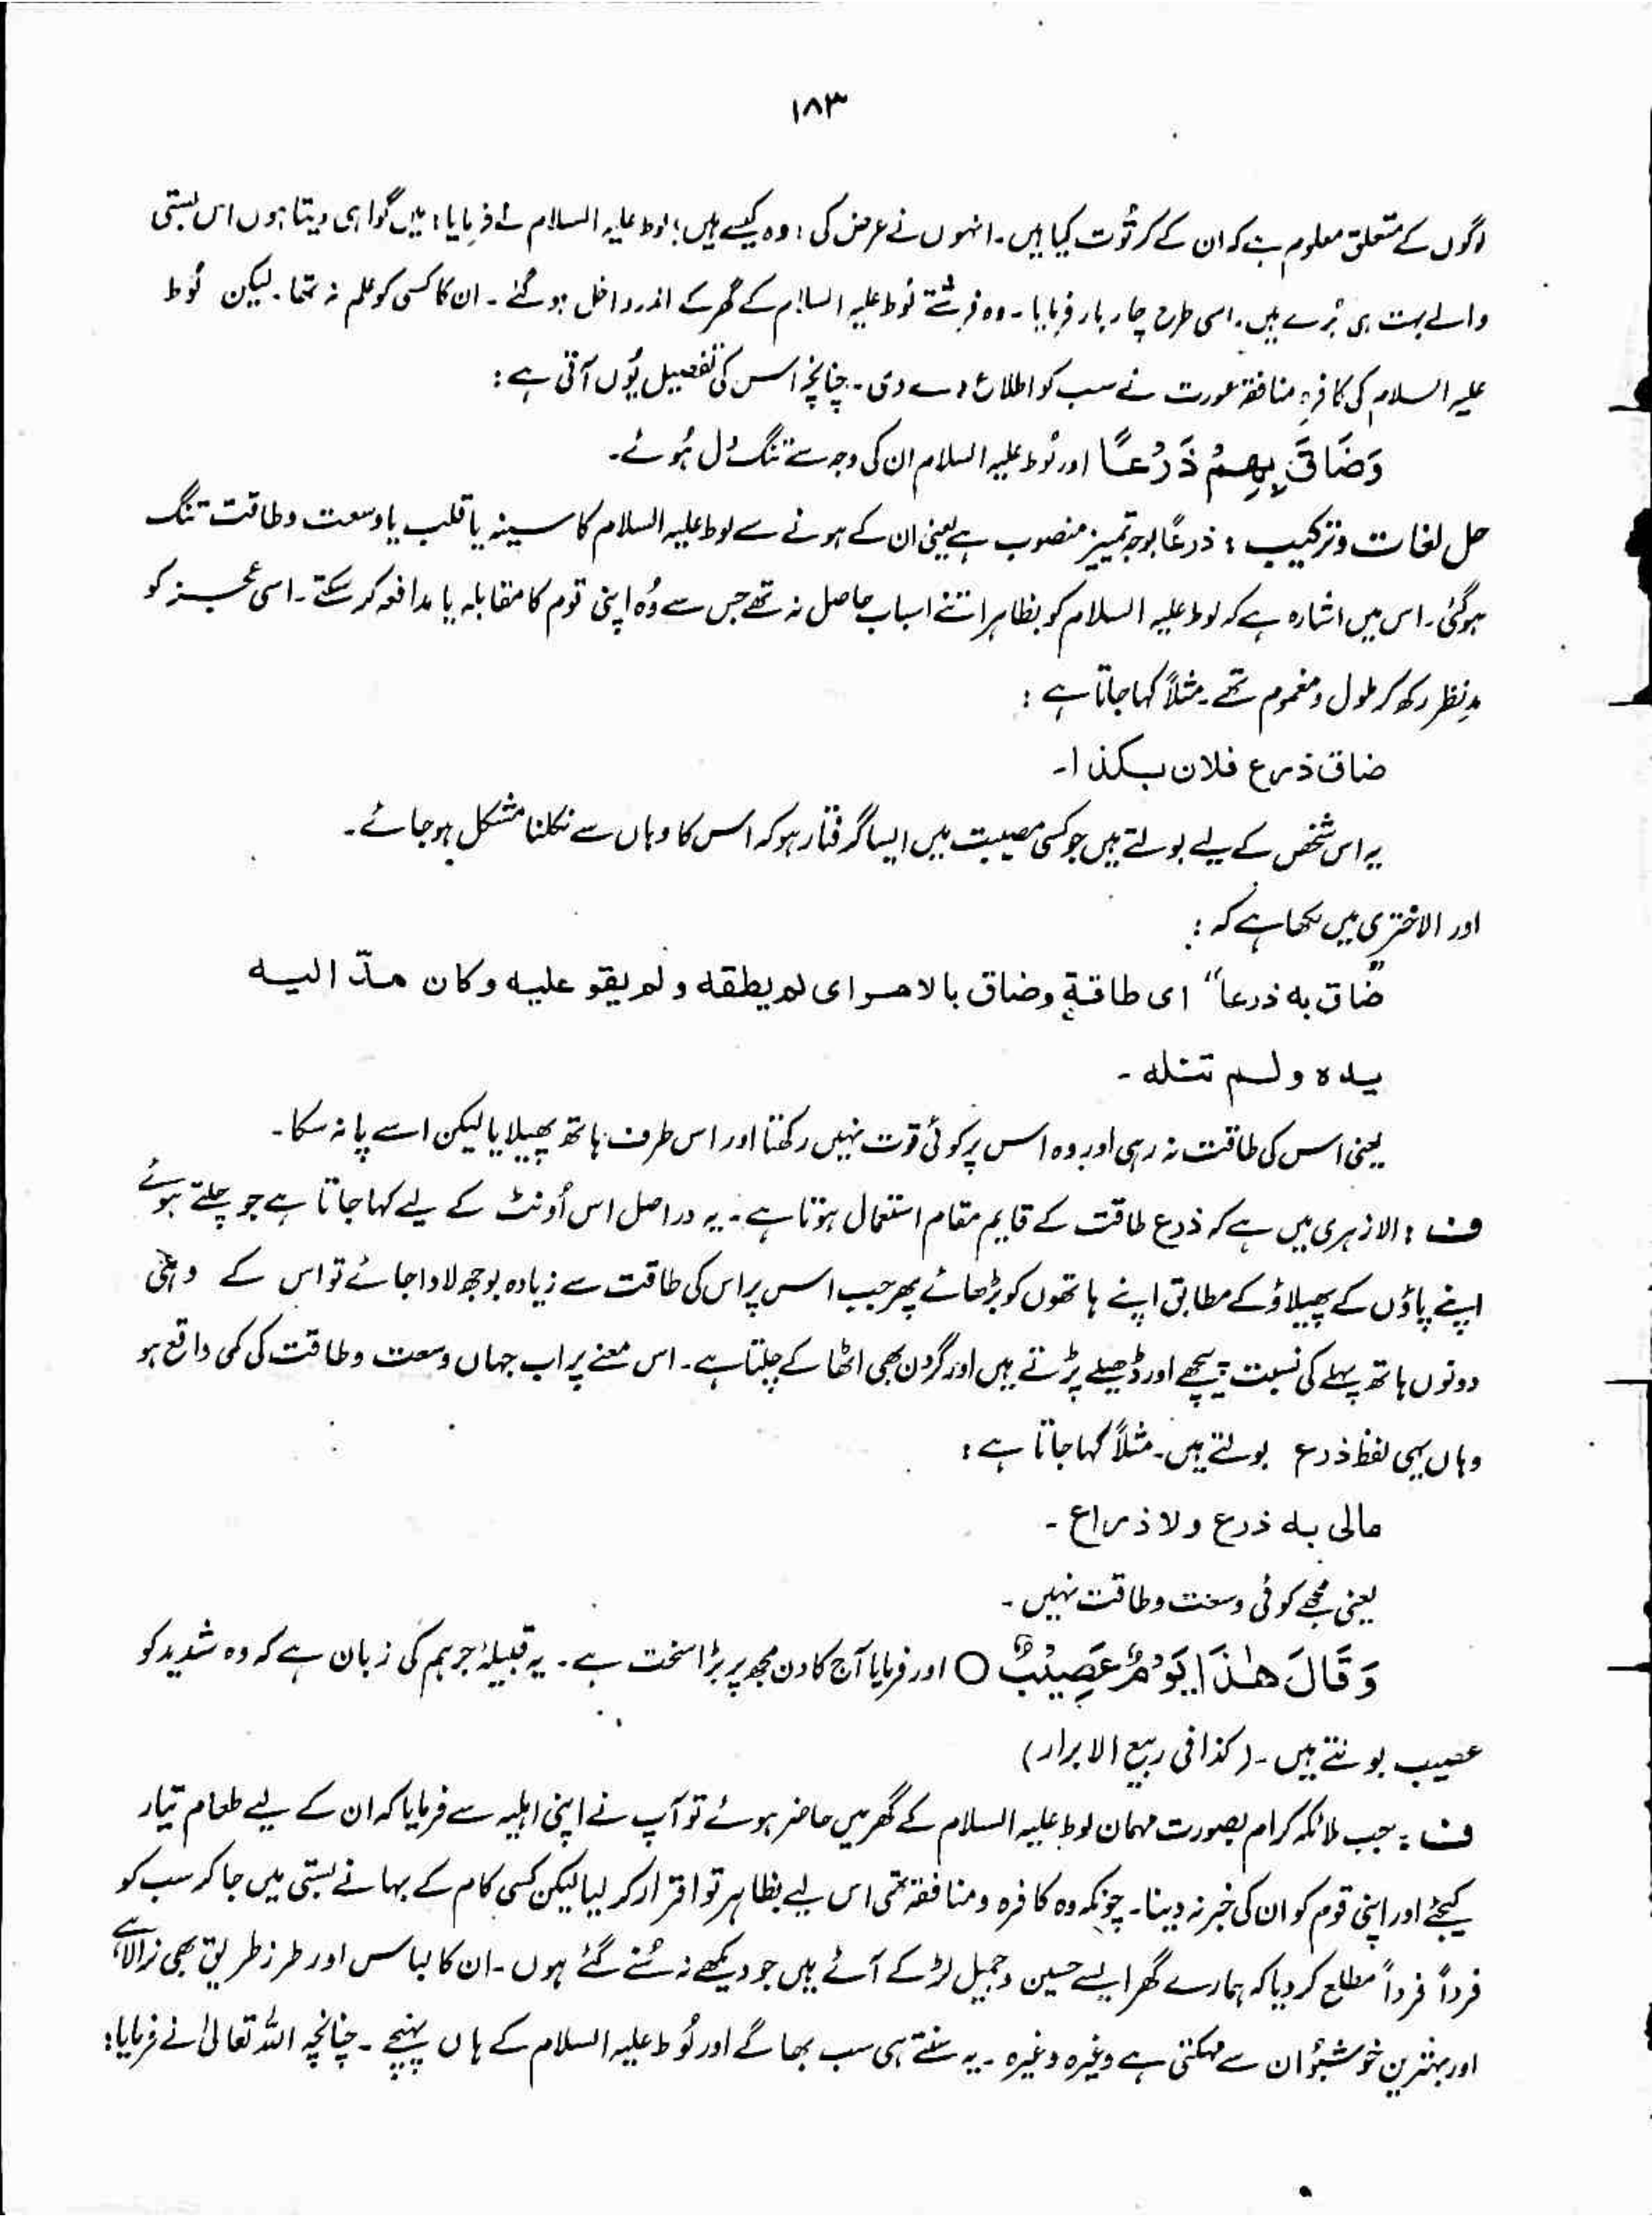 ۱۸۳
لوگوں کے متعلق معلوم ہے کہ ان کے کرتُوت کیا ہیں۔ انہوں نے عرض کی : وہ کیسے ہیں ؛ لوط علیہ السلام نے فرمایا : میں گواہی دیتا ہوں اس بستی
والے بہت ہی بُرے ہیں۔ اسی طرح چار بار فرمایا۔ وہ فرشتے لُوط علیہ السلام کے گھر کے اندر داخل ہو گئے۔ ان کا کسی کو علم نہ تھا۔ لیکن لُوط
علیہ السلام کی کافرہ منافقہ عورت نے سب کو اطلاع دے دی۔ چنانچہ اس کی تفصیل یُوں آتی ہے :
وَضَاقَ بِهِمْ ذَرْعًا اور لُوط علیہ السلام ان کی وجہ سے تنگ دل ہُوئے۔
حل لغات و ترکیب : ذرعًا بوجہ تمییز منصوب ہے یعنی ان کے ہونے سے لوط علیہ السلام کا سینہ یا قلب یا وسعت و طاقت تنگ
ہوگئی۔ اس میں اشارہ ہے کہ لوط علیہ السلام کو بظاہر اتنے اسباب حاصل نہ تھے جس سے وُہ اپنی قوم کا مقابلہ یا مدافعہ کر سکتے۔ اسی عجز کو
مدِنظر رکھ کر ملول و مغموم تھے۔ مثلاً کہا جاتا ہے :
ضاق ذرع فلان بکذا۔
یہ اس شخص کے لیے بولتے ہیں جو کسی مصیبت میں ایسا گرفتار ہو کہ اس کا وہاں سے نکلنا مشکل ہو جائے۔
اور الاختری میں لکھا ہے کہ :
"ضاق به ذرعا" ای طاقةٍ وضاق بالامر ای لم یطقه و لم یقو علیه وکان مدّ الیه
یده ولم تنله ۔
یعنی اس کی طاقت نہ رہی اور وہ اس پر کوئی قوت نہیں رکھتا اور اس طرف ہاتھ پھیلایا لیکن اسے پا نہ سکا۔
ف : الازہری میں ہے کہ ذرع طاقت کے قایم مقام استعمال ہوتا ہے۔ یہ دراصل اس اُونٹ کے لیے کہا جاتا ہے جو چلتے ہوئے
اپنے پاؤں کے پھیلاؤ کے مطابق اپنے ہاتھوں کو بڑھائے پھر جب اس پر اس کی طاقت سے زیادہ بوجھ لادا جائے تو اس کے وہی
دونوں ہاتھ پہلے کی نسبت پیچھے اور ڈھیلے پڑتے ہیں اور گردن بھی اٹھا کے چلتا ہے۔ اس معنے پر اب جہاں وسعت و طاقت کی کمی واقع ہو
وہاں یہی لفظ ذرع بولتے ہیں۔ مثلاً کہا جاتا ہے :
مالی به ذرع ولا ذراع ۔
یعنی مجھے کوئی وسعت و طاقت نہیں ۔
وَقَالَ هٰذَا يَوْمٌ عَصِيْبٌ ○ اور فرمایا آج کا دن مجھ پر بڑا سخت ہے۔ یہ قبیلۂ جرہم کی زبان ہے کہ وہ شدید کو
عصیب بولتے ہیں۔ (کذا فی ربیع الابرار)
ف : جب ملائکہ کرام بصورت مہمان لوط علیہ السلام کے گھر میں حاضر ہوئے تو آپ نے اپنی اہلیہ سے فرمایا کہ ان کے لیے طعام تیار
کیجئے اور اپنی قوم کو ان کی خبر نہ دینا۔ چونکہ وہ کافرہ و منافقہ تھی اس لیے بظاہر تو اقرار کر لیا لیکن کسی کام کے بہانے بستی میں جا کر سب کو
فرداً فرداً مطلع کر دیا کہ ہمارے گھر ایسے حسین و جمیل لڑکے آئے ہیں جو دیکھے نہ سُنے گئے ہوں۔ ان کا لباس اور طرز طریق بھی نرالا ہے
اور بہترین خوشبُو ان سے مہکتی ہے وغیرہ وغیرہ۔ یہ سنتے ہی سب بھاگے اور لُوط علیہ السلام کے ہاں پہنچے۔ چنانچہ اللہ تعالیٰ نے فرمایا :